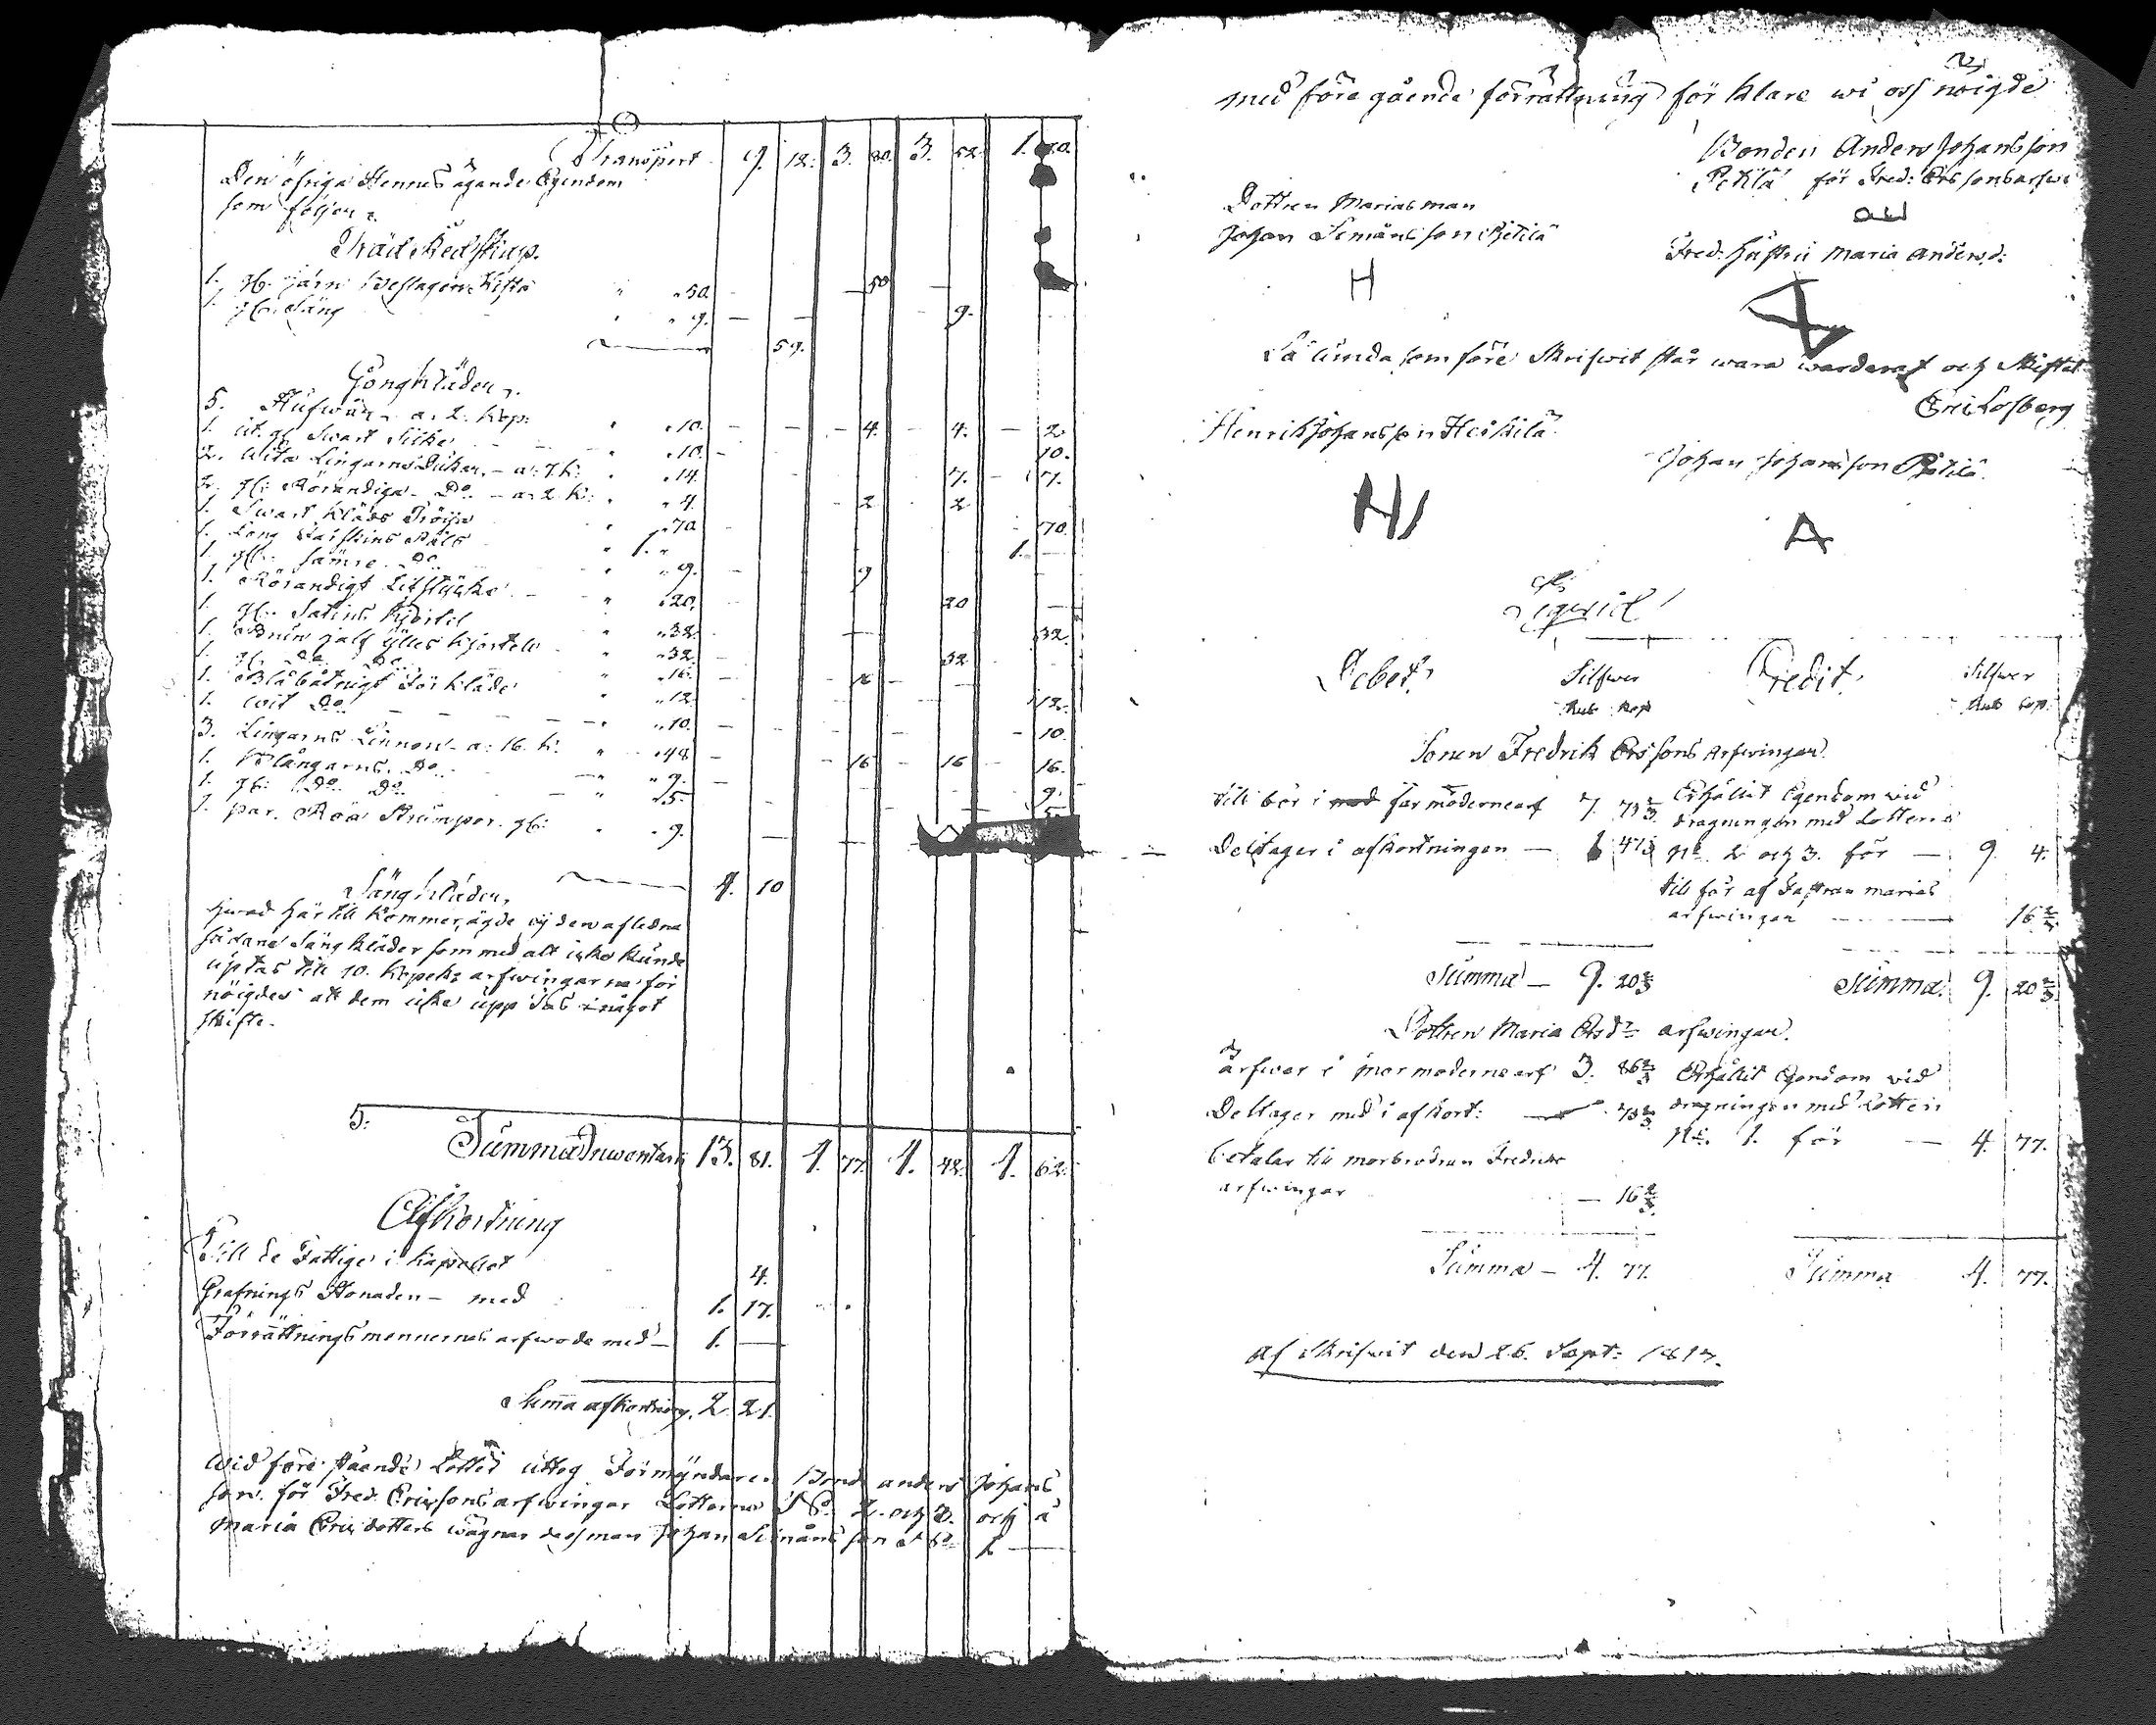 Transport 9. 12. 3. 80. 3. 52. 1. 80.
Den öfriga Hennes ägande Egendom
som följer
Träd Redskap.
1. gb. järn beslagen Kista " " 50. — 50 —
1. gb. Säng " " 9. — — 9.
59.
Gångkläder.
5. Hufwor a. 2. kop: " 10. — — 4. 4. — 2
1. ut. gl. Swart Silke " 10. — 10.
2. wita Lingarns Dukar. — a: 7. k: " 14. 7. — 7.
2. gl: Rörandiga — Do. — a. 2. k: " 4. 2 2
1. Swart kläds Tröija " 70. — 70.
1. Long Fårskins Päls " 1. " 1. —
1. gl. sämre. Do " 9. — 9
1. Rörandigt Lifstycke — " 20. 20 —
1. gl. Satins Kjortel " 32. — 32.
1. Brun half ylles kjortell " 32. — 32
1. gl. Do Do " 16. — 16 —
1. Blåbotnigt Förkläde " 12. 12.
1. wit Do. — — " 10. — 10.
3. Lingarns Linnen — a: 16. k. " 48 — 16 16 — 16.
1. Blångarns. Do — " 9. — 9.
1. gl: Do. Do. — " 5. 5.
1. par. Röa Strumpor. gl: " 9. — —
4. 10
Sängkläder.
hwad här till kommer, ägde ej den afledna
sådane Sängkläder som med alt icke kunde
uptas till 10. kopek: arfwingarna för
nöigdes att dem icke upp tas i något
skifte.
5:
Summa Inventarii 13. 81. 4. 77. 4. 42. 4. 62.
Afkortning
Till de Fattige i Kapellet 4.
Grafnings Konaden — med 1. 17.
Förrättningsmennernas arfwode med — 1. —
Summa afkortning. 2. 21.
wid före stående Lotter uttog Förmyndaren Bond anders Johans
son. för Fred. Ericssons arfwingar Lotterne No. 2. och 3. och å
Maria Ericsdotters wägnar des man Johan Simånsson No 1. —
med före gående förrättning för klare wi oss nöigde
Bonden Anders Johansson
Petilä för Fred: Erssons arfwi
Dottren Marias man
Johan Simånsson Pätilä
Fred: hustru Maria Andersd:
H
Så lunda som före Skrifwit står wara warderat och Skiftat
Eric Losberg
Henrik Johansson Heikilä
Johan Johansson Pätilä
H
A
Debet. Silfwer Credit. Silfwer
Rub kop Rub kop.
Sonen Fredrik Erssons Arfwingar.
Till bör i farmödernearf 7. 73 1/3 Erhållit Egendom wid
dragningen med Lotterna
Deltager i afkortningen — 1 47 1/3 No. 2 och 3. för — 9. 4.
Till får af Fastran marias
arfwingar — 16 2/3
Summa — 9. 20 2/3 Summa. 9. 20 2/3
Dottren Maria Ersdr arfwingar.
ärfwer i mormodernearf 3. 86 2/3 Erhållit Egendom wid
Deltager med i afkort: — 73 2/3 dragningen med Lotten
No. 1. för — 4. 77.
betalar till morbrodren Fredriks
arfwingar — 16 2/3
Summa — 4. 77. Summa 4. 77.
af skrifwit den 26. Sept: 1817.